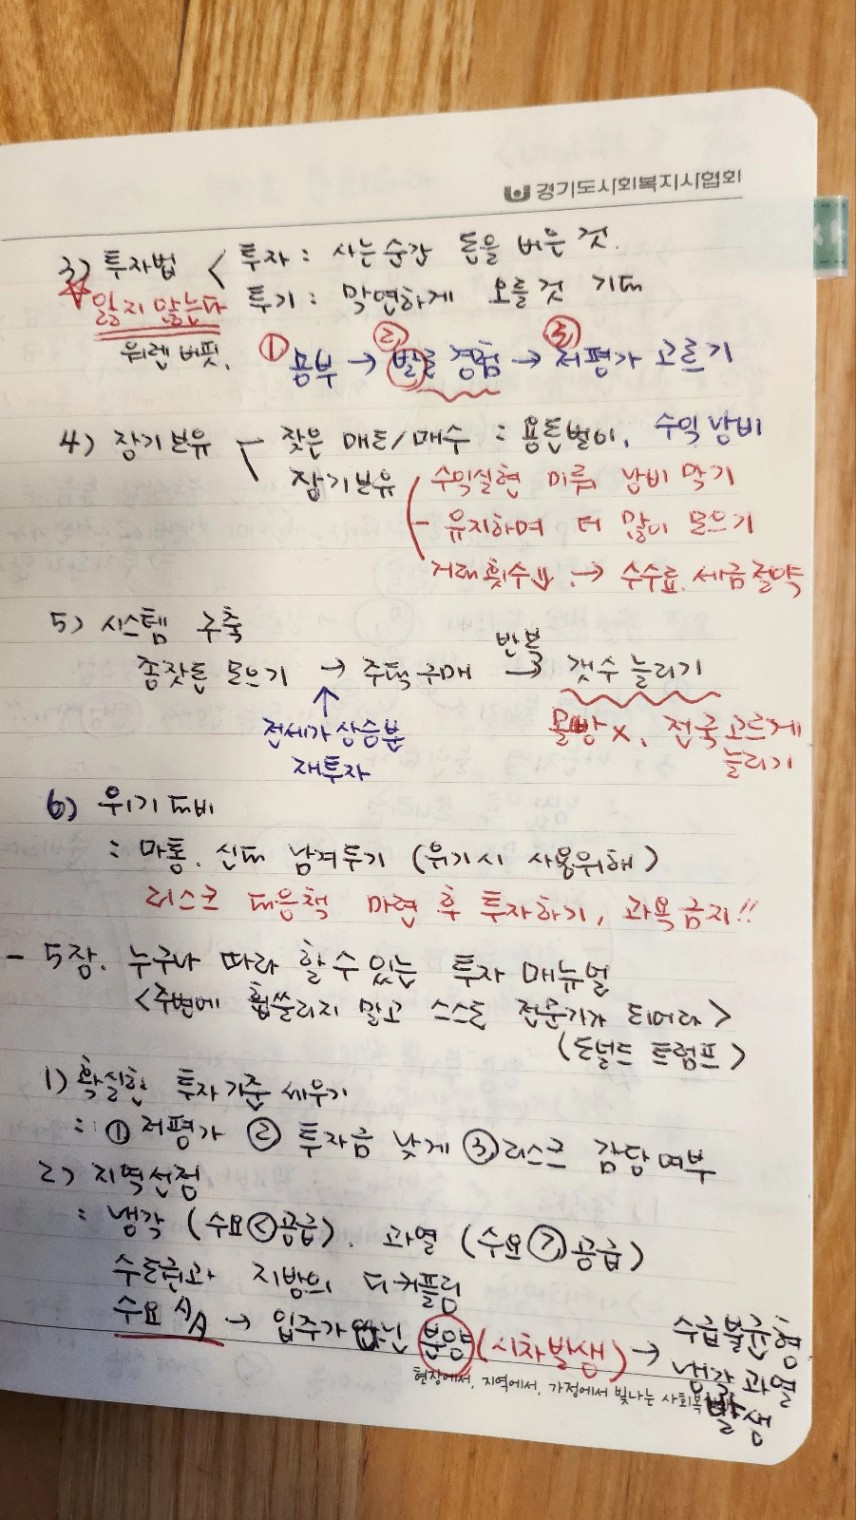 경기도사회복지사협회
3) 투자법 < 투자 : 사는순간 돈을 버는 것.
투기 : 막연하게 오를것 기대
☆잃지 않는다
워렌 버핏. ① 공부 → ② 발로 경험 → ③ 저평가 고르기
4) 장기보유 잦은 매도/매수 : 용돈벌이, 수익 낭비
장기보유 수익실현 미뤄 낭비 막기
- 유지하며 더 많이 모으기
거래횟수⇓ → 수수료. 세금절약
5) 시스템 구축
종잣돈 모으기 → 주택구매 반복 → 갯수 늘리기
↑ 전세가 상승분 재투자
몰빵 x, 전국 고르게 늘리기
6) 위기대비
: 마통. 신대 남겨두기 (위기시 사용위해)
리스크 대응책 마련 후 투자하기, 과욕금지!!
- 5장. 누구나 따라 할 수 있는 투자 매뉴얼
<주변에 휩쓸리지 말고 스스로 전문가가 되어라>
(도널드 트럼프)
1) 확실한 투자기준 세우기
: ① 저평가 ② 투자금 낮게 ③ 리스크 감당여부
2) 지역선정
: 냉각 (수요<공급). 과열 (수요>공급)
수도권과 지방의 디커플링
수요 → 입주가 아닌 분양 (시차발생) → 수급불균형
냉각 과열
발생
현장에서, 지역에서, 가정에서 빛나는 사회복